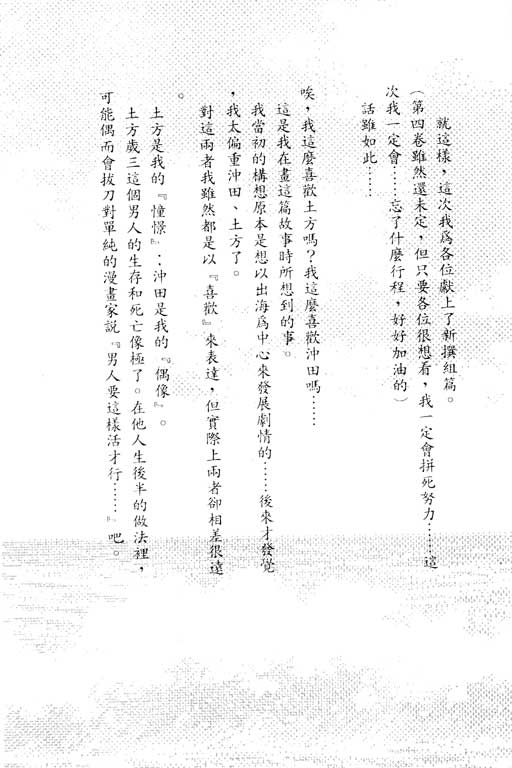 就這樣，這次我爲各位獻上了新撰組篇。
（第四卷雖然還未定，但只要各位很想看，我一定會拼死努力……這
次我一定會……忘了什麼行程，好好加油的）
話雖如此……
唉，我這麼喜歡土方嗎？我這麼喜歡沖田嗎……
這是我在畫這篇故事時所想到的事。
我當初的構想原本是想以出海爲中心來發展劇情的……後來才發覺
，我太偏重沖田、土方了。
對這兩者我雖然都是以『喜歡』來表達，但實際上兩者卻相差很遠
。
土方是我的『憧憬』：沖田是我的『偶像』。
土方歲三這個男人的生存和死亡像極了。在他人生後半的做法裡，
可能偶而會拔刀對單純的漫畫家説『男人要這樣活才行……』吧。